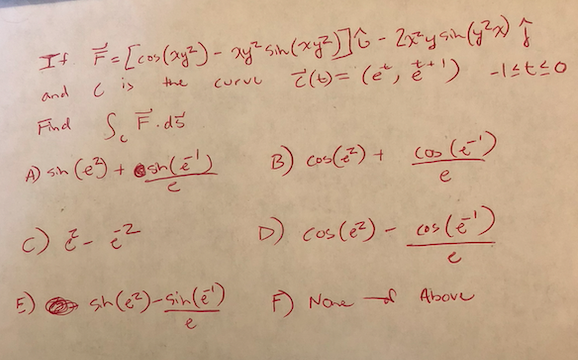 If F⃗ = [cos(xy²) - xy² sin(xy²)] î - 2x²y sin(y²x) ĵ
and C is the curve c⃗(t) = (eᵗ, eᵗ⁺¹) -1 ≤ t ≤ 0
Find ∫_C F⃗ · ds⃗
A) sin(e²) + sin(e⁻¹)/e B) cos(e²) + cos(e⁻¹)/e
C) e² - e⁻² D) cos(e²) - cos(e⁻¹)/e
E) sin(e²) - sin(e⁻¹)/e F) None of Above